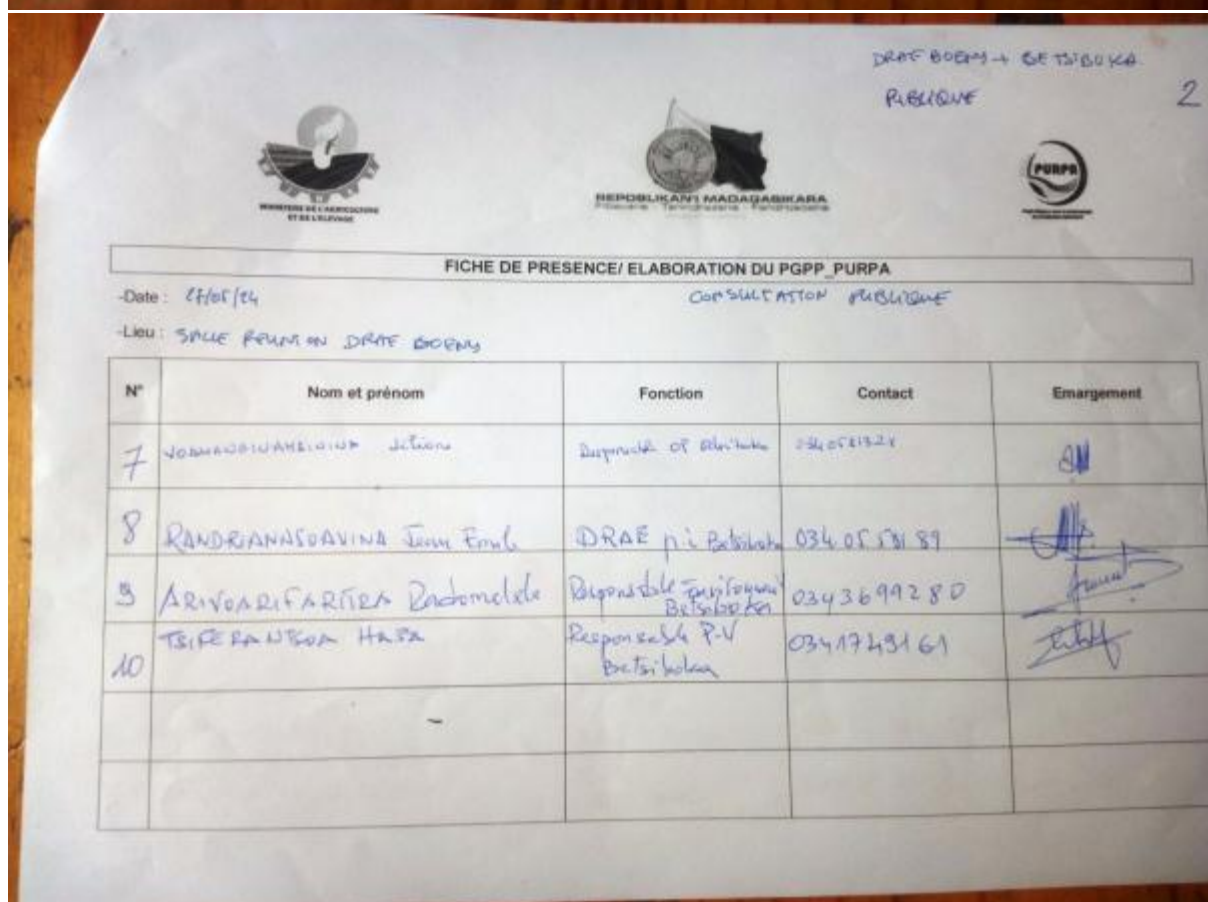 DRAE BOENY + BETSIBOKA
PUBLIQUE
2
MINISTERE DE L'AGRICULTURE
ET DE L'ELEVAGE
REPOBLIKAN'I MADAGASIKARA
Fitiavana - Tanindrazana - Fandrosoana
PURPA
FICHE DE PRESENCE/ ELABORATION DU PGPP_PURPA
-Date : 27/05/24
CONSULTATION PUBLIQUE
-Lieu : SALLE REUNION DRAE BOENY
N° Nom et prénom Fonction Contact Emargement
7 Responsable
8 RANDRIANASOAVINA Jean DRAE p.i Betsiboka
9 Responsable Betsiboka 0343699280
10 TSIFERANTSOA Responsable P.V Betsiboka 0341749161